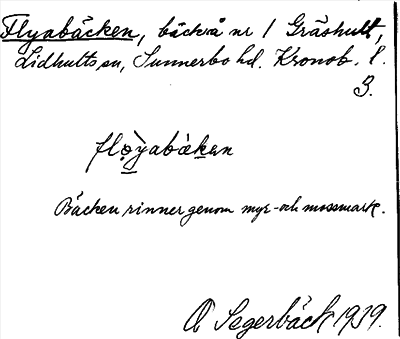 Flyabäcken, bäckå nr 1 Gräshult,
Lidhults sn, Sunnerbo hd. Kronob. l.
3.
fløyabäken
Bäcken rinner genom myr- och mossmark.
O Segerbäck 1939.